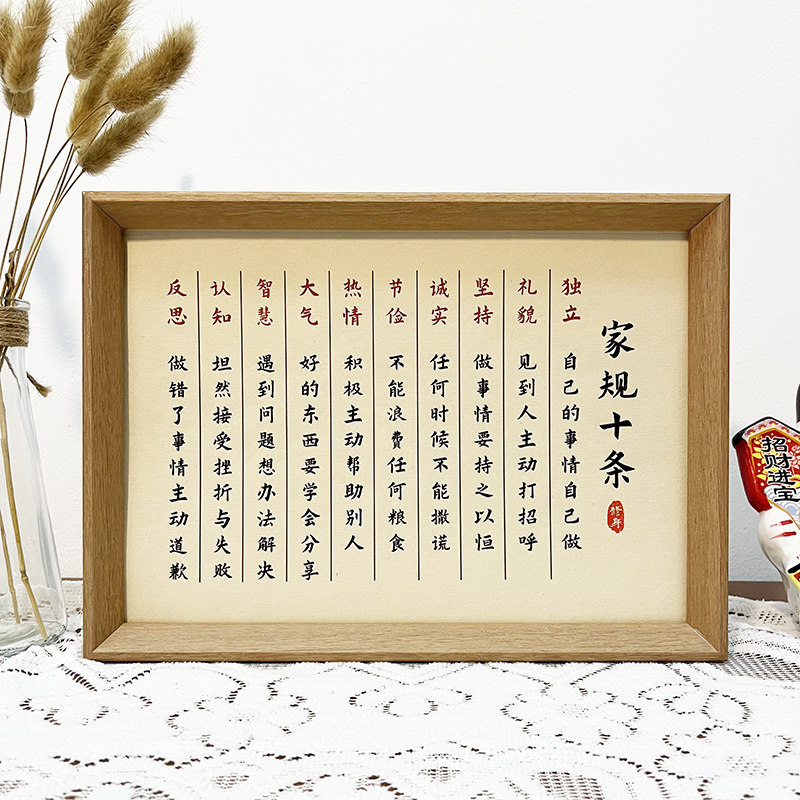 家规十条
修身
独立 自己的事情自己做
礼貌 见到人主动打招呼
坚持 做事情要持之以恒
诚实 任何时候不能撒谎
节俭 不能浪费任何粮食
热情 积极主动帮助别人
大气 好的东西要学会分享
智慧 遇到问题想办法解决
认知 坦然接受挫折与失败
反思 做错了事情主动道歉
招财进宝